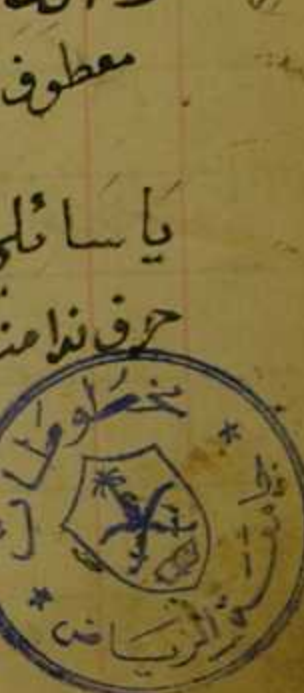 معطوف
يا سائلي
حرف ندا من
مخطوطات
جامعة الرياض